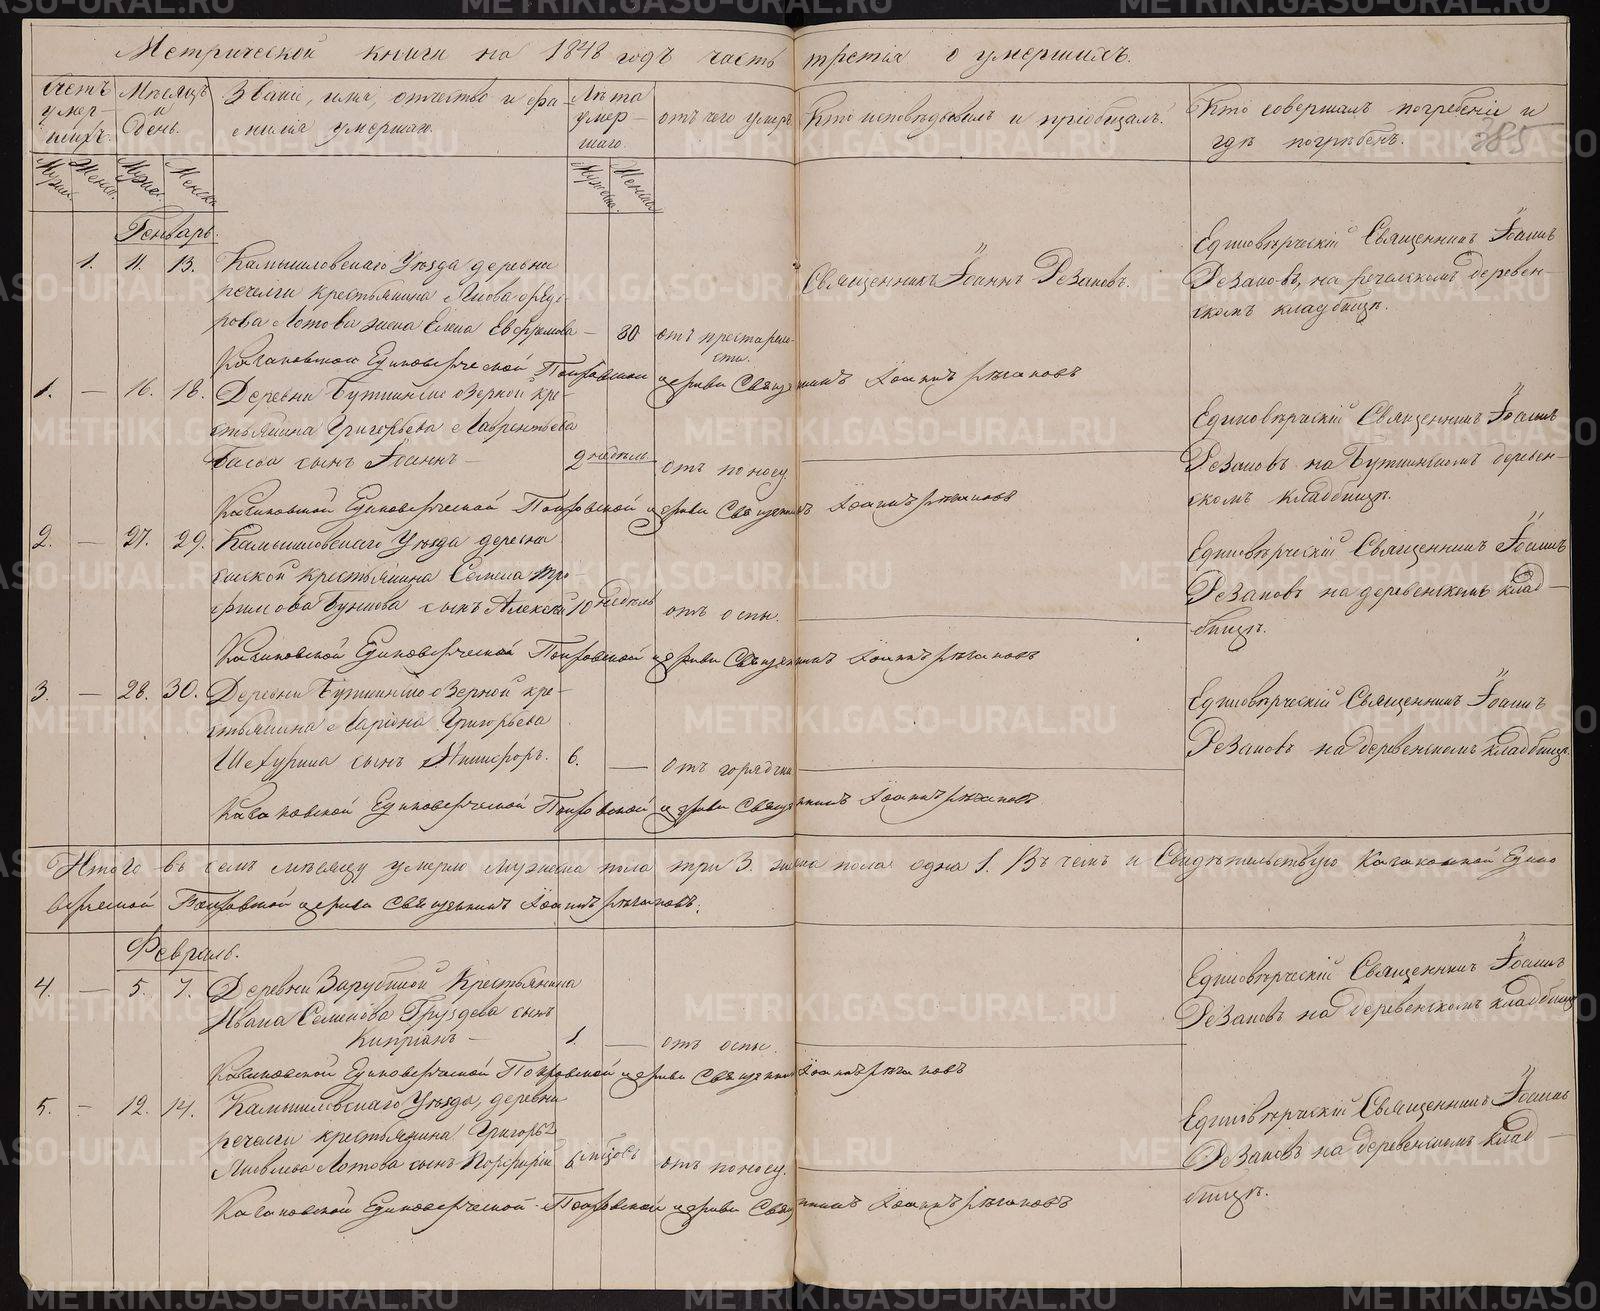 Метрической книги на 1848 годъ часть третія о умершихъ.
385
Счетъ умер-шихъ.
Мѣсяцъ и День.
Званіе, имя, отчество и фа-
милія умершаго.
Лѣта умер-шаго.
отъ чего умеръ
Кто исповѣдывалъ и пріобщалъ.
Кто совершалъ погребеніе и
гдѣ погрѣбенъ.
Мужск. Женск. Мужск. Женск. Мужеска. Женска
Генварь.
1. 11. 13. Камышловскаго Уѣзда деревни
речелги крестьянина Якова Федо-
рова Лотова жена Елена Евфимова — 80 отъ престарело-
сти.
Священникъ Іоаннъ Резановъ.
Единовѣрческій Священникъ Іоаннъ
Резановъ, на речелскомъ деревен-
скомъ кладбищѣ.
Единоверческой Покровской церкви Священникъ Іоаннъ Резановъ
1. — 16. 18. Деревни Буткинско Озерной кре-
стьянина Григорья Лаврентьева
сынъ Іоаннъ — 2 недѣль отъ поносу.
Единовѣрческій Священникъ Іоаннъ
Резановъ на Буткинскомъ деревен-
скомъ кладбищѣ.
Единоверческой Покровской церкви Священникъ Іоаннъ Резановъ
2. — 27. 29. Камышловскаго Уѣзда деревни
крестьянина Семена Тро-
фимова сынъ Алексѣй 10 недѣль отъ оспы.
Единовѣрческій Священникъ Іоаннъ
Резановъ на деревенскомъ клад-
бищѣ.
Единоверческой Покровской церкви Священникъ Іоаннъ Резановъ
3. — 28. 30. Деревни Буткинско Озерной кре-
стьянина Ларіона Григорьева
сынъ Никифоръ. 6. — отъ горячки
Единовѣрческій Священникъ Іоаннъ
Резановъ на деревенскомъ кладбищѣ.
Единоверческой Покровской церкви Священникъ Іоаннъ Резановъ
Итого въ семъ мѣсяцу умерло мужеска пола три 3. женска пола одна 1. Въ чемъ и Свидѣтельствую Едино
верческой Покровской церкви Священникъ Іоаннъ Резановъ.
Февраль.
4. — 5. 7. Деревни Зарубиной Крестьянина
Ивана Семенова Груздева сынъ
Кипріанъ — 1. — отъ оспы.
Единовѣрческій Священникъ Іоаннъ
Резановъ на деревенскомъ кладбищѣ
Единоверческой Покровской церкви Священникъ Іоаннъ Резановъ
5. — 12. 14. Камышловскаго Уѣзда, деревни
речелги крестьянина Григорья
Яковлева Лотова сынъ Порфирій 6 мѣсяцовъ отъ поносу.
Единовѣрческій Священникъ Іоаннъ
Резановъ на деревенскомъ клад-
бищѣ.
Единоверческой Покровской церкви Священникъ Іоаннъ Резановъ
METRIKI.GASO-URAL.RU